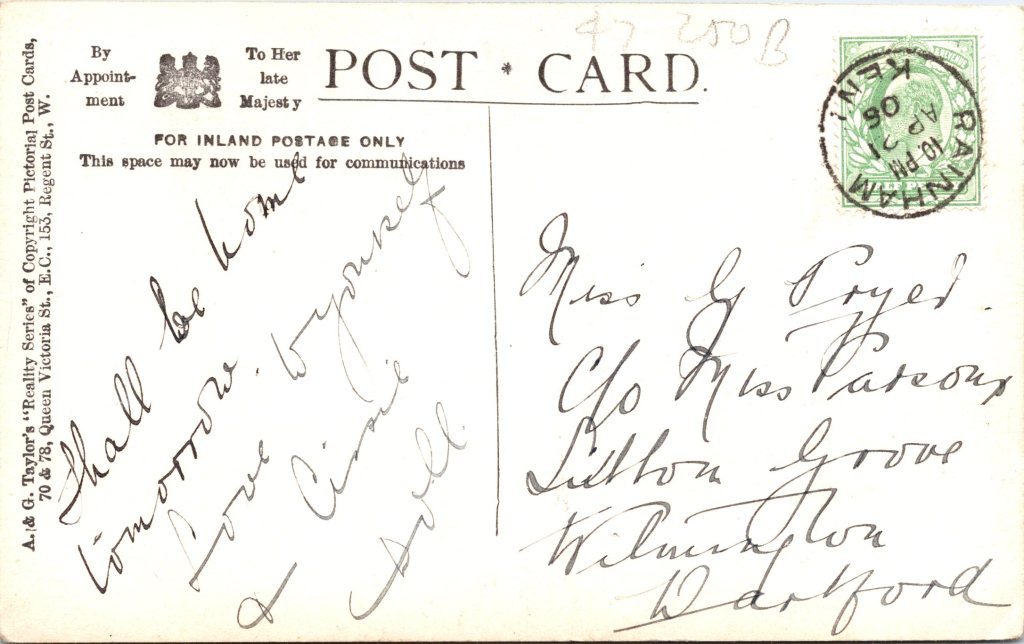 A. & G. Taylor's "Reality Series" of Copyright Pictorial Post Cards,
70 & 78, Queen Victoria St., E.C., 153, Regent St., W.
By
Appoint-
ment
To Her
late
Majesty
POST * CARD.
FOR INLAND POSTAGE ONLY
This space may now be used for communications
Shall be home
tomorrow.
Love to yourself
& Cissie
Doll.
47 250B
RAINHAM
KENT
10. PM
AP 21
06
Miss G Pryed.
C/o Miss Parsons
Sutton Grove
Wilmington
Dartford